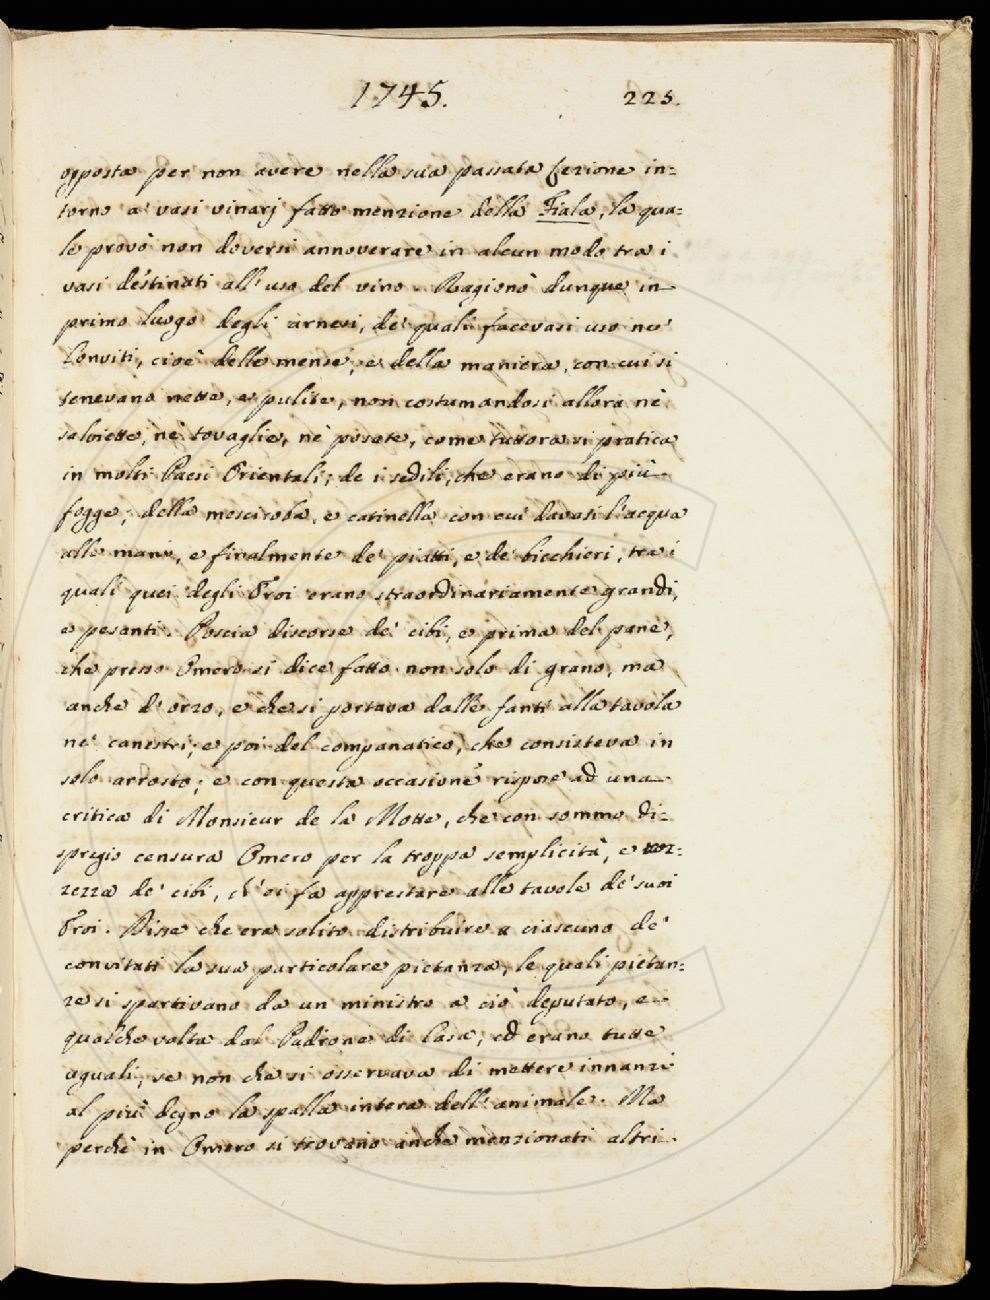 1745.
225.
opposta per non avere nella sua passata Lezione in=
torno a' vasi vinarj fatto menzione della Fiala, la qua=
le provò non doversi annoverare in alcun modo tra i
vasi destinati all'uso del vino. Ragionò dunque in
primo luogo degli arnesi, de' quali facevasi uso ne'
Conviti, cioè delle mense, e della maniera, con cui si
tenevano nette, e pulite, non costumandosi allora nè
salviette, nè tovaglie, nè posate, come tuttora si pratica
in molti Paesi Orientali; de i sedili, che erano di più
fogge; della mesciroba, e catinella con cui davasi l'acqua
alle mani, e finalmente de' piatti, e de' bicchieri, tra i
quali quei degli Eroi erano straordinariamente grandi,
e pesanti. Poscia discorse de' cibi, e prima del pane,
che presso Omero si dice fatto non solo di grano, ma
anche d'orzo, e che si portava dalle fanti alla tavola
ne' canestri; e poi del companatico, che consisteva in
solo arrosto; e con questa occasione rispose ad una
critica di Monsieur de la Motte, che con sommo di=
spregio censura Omero per la troppa semplicità, e roz=
zezza de' cibi, ch'ei fa apprestare alle tavole de' suoi
Eroi. Disse che era solito distribuire a ciascuno de'
convitati la sua particolare pietanza, le quali pietan=
ze si spartivano da un ministro a ciò deputato, e
qualche volta dal Padrone di Casa; ed erano tutte
uguali, se non che si osservava di mettere innanzi
al più degno la spalla intera dell'animale. Ma
perchè in Omero si trovano anche menzionati altri